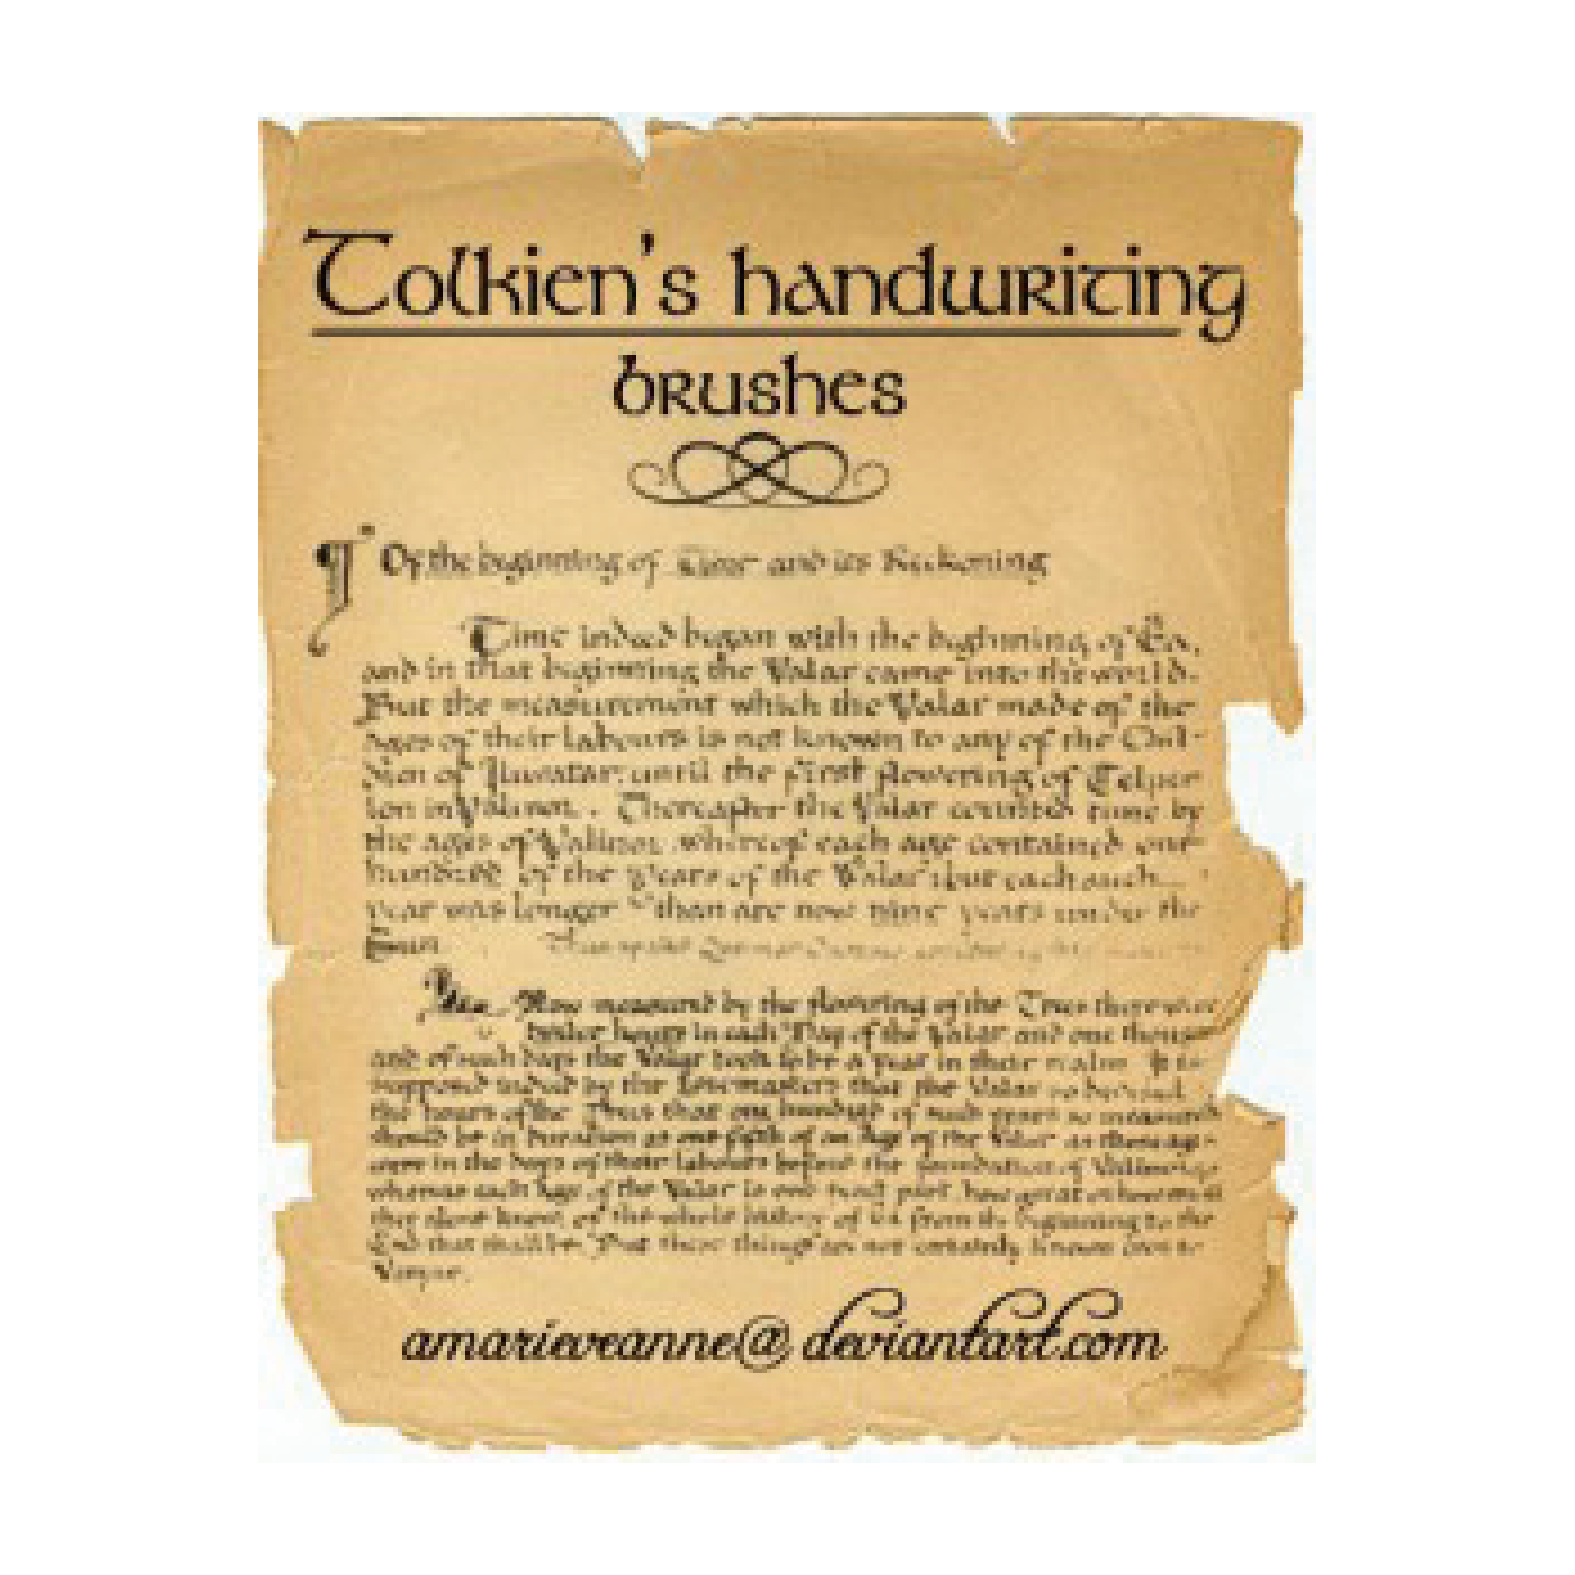 Tolkien's handwriting
brushes
Of the beginning of Time and its Reckoning
Time indeed began with the beginning of Ea,
and in that beginning the Valar came into the world.
But the measurement which the Valar made of the
ages of their labours is not known to any of the Chil-
dren of Iluvatar, until the first flowering of Telper
ion in Valinor. Thereafter the Valar counted time by
the ages of Valinor, whereof each age contained one
hundred of the years of the Valar; but each such
year was longer than are now nine years under the
Sun.
Now measured by the flowering of the Trees there were
twelve hours in each Day of the Valar and one thousand
and of such days the Valar took to be a year in their realm. It is
supposed indeed by the Loremasters that the Valar so devised
the hours of the Trees that one hundred of such years so measured
should be in duration as one fifth of an Age of the Valar as those ages
were in the days of their labours before the foundation of Valinor.
whereas each Age of the Valar is one part, how great
they alone know, of the whole history of Ea from the beginning to the
End that shall be. But these things are not certainly known
amarieveanne@deviantart.com